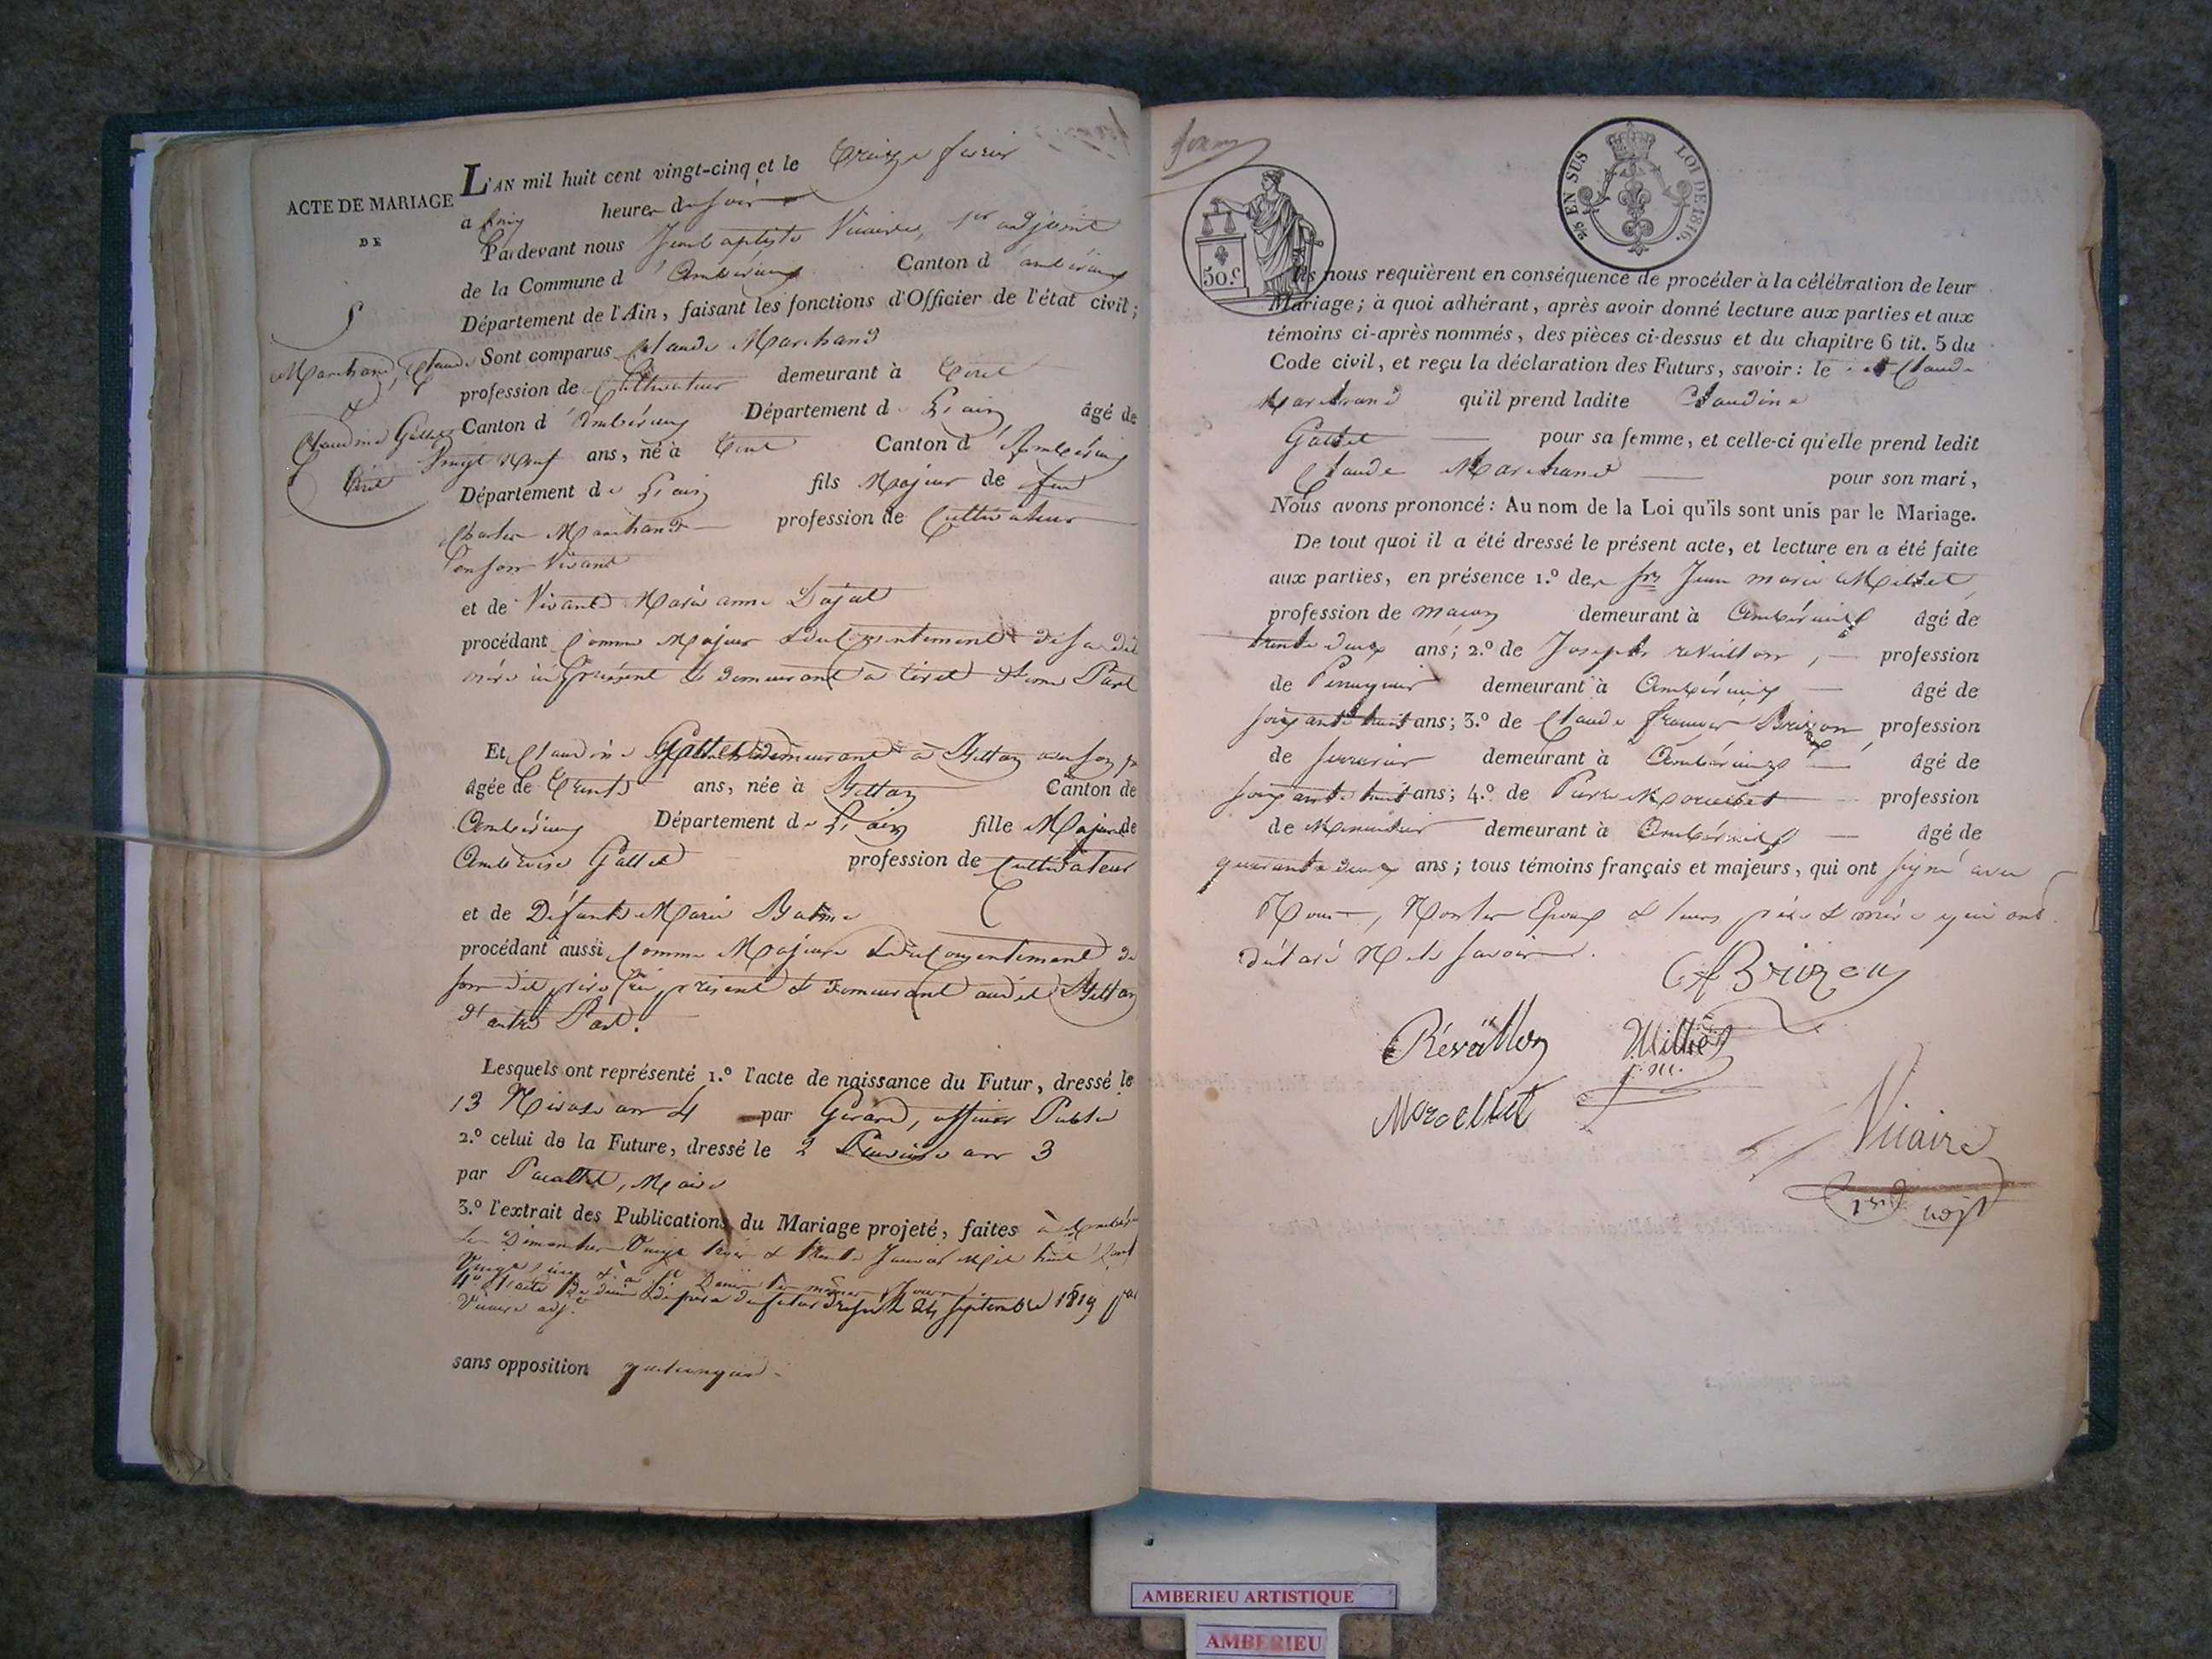 L'AN mil huit cent vingt-cinq et le treize fevrier
ACTE DE MARIAGE
DE
à cinq heures du soir
Pardevant nous Jean baptiste Vicaire, 1er adjoint
de la Commune d'Ambérieux Canton d'ambérieux
Département de l'Ain, faisant les fonctions d'Officier de l'état civil;
Marchand, Claude
&
Claudine Gallet
Tiret
Sont comparus Claude Marchand
profession de Cultivateur demeurant à Tiret
Canton d'Ambérieux Département de L'ain âgé de
Vingt Neuf ans, né à Tiret Canton d'Ambérieux
Département de L'ain fils Majeur de feu
Charles Marchand profession de Cultivateur
en son Vivant
et de Vivante Marie anne Dajat
procédant Comme Majeur & du Consentement de sa dite
mère ici présente & demeurant à tiret d'une Part
Et Claudine Gallet demeurant à Bettan avec son p
âgée de Trente ans, née à Bettan Canton de
Ambérieux Département de L'ain fille Majeure de
Ambroise Gallet profession de Cultivateur
et de Défunte Marie Balme
procédant aussi Comme Majeure & du Consentement de
son dit père ici présent & demeurant audit Bettan
d'autre Part.
Lesquels ont représenté 1.º l'acte de naissance du Futur, dressé le
13 Nivose an 4 par Girard, officier Public
2.º celui de la Future, dressé le 2 Pluviose an 3
par Pacallet, Maire
3.º l'extrait des Publications du Mariage projeté, faites à Ambérieux
Les Dimanches Vingt trois & trente Janvier Mil huit Cent
Vingt Cinq & à St Denis les mêmes Jours
4º L'acte de décès du père du futur dressé le 24 septembre 1819 par
Vicaire adj.t
sans opposition quelconque.
25 EN SUS LOI DE 1816.
50 c.
Ils nous requièrent en conséquence de procéder à la célébration de leur
Mariage; à quoi adhérant, après avoir donné lecture aux parties et aux
témoins ci-après nommés, des pièces ci-dessus et du chapitre 6 tit. 5 du
Code civil, et reçu la déclaration des Futurs, savoir: le dt Claude
Marchand qu'il prend ladite Claudine
Gallet pour sa femme, et celle-ci qu'elle prend ledit
Claude Marchand pour son mari,
Nous avons prononcé: Au nom de la Loi qu'ils sont unis par le Mariage.
De tout quoi il a été dressé le présent acte, et lecture en a été faite
aux parties, en présence 1.º des srs Jean marie Milliet,
profession de maçon demeurant à Ambérieux âgé de
trente deux ans; 2.º de Joseph revillon, profession
de Perruquier demeurant à Ambérieux âgé de
soixante huit ans; 3.º de Claude françois Brizon, profession
de serrurier demeurant à Ambérieux âgé de
soixante huit ans; 4.º de Pierre Morcellet profession
de Menuisier demeurant à Ambérieux âgé de
quarante deux ans; tous témoins français et majeurs, qui ont signé avec
Nous, Non les Epoux & leurs père & mère qui ont
déclaré Ne le savoir.
CF Brizon
Révillon Milliet
J. M.
Morcellet
Vicaire
1er adjt
AMBERIEU ARTISTIQUE
AMBERIEU